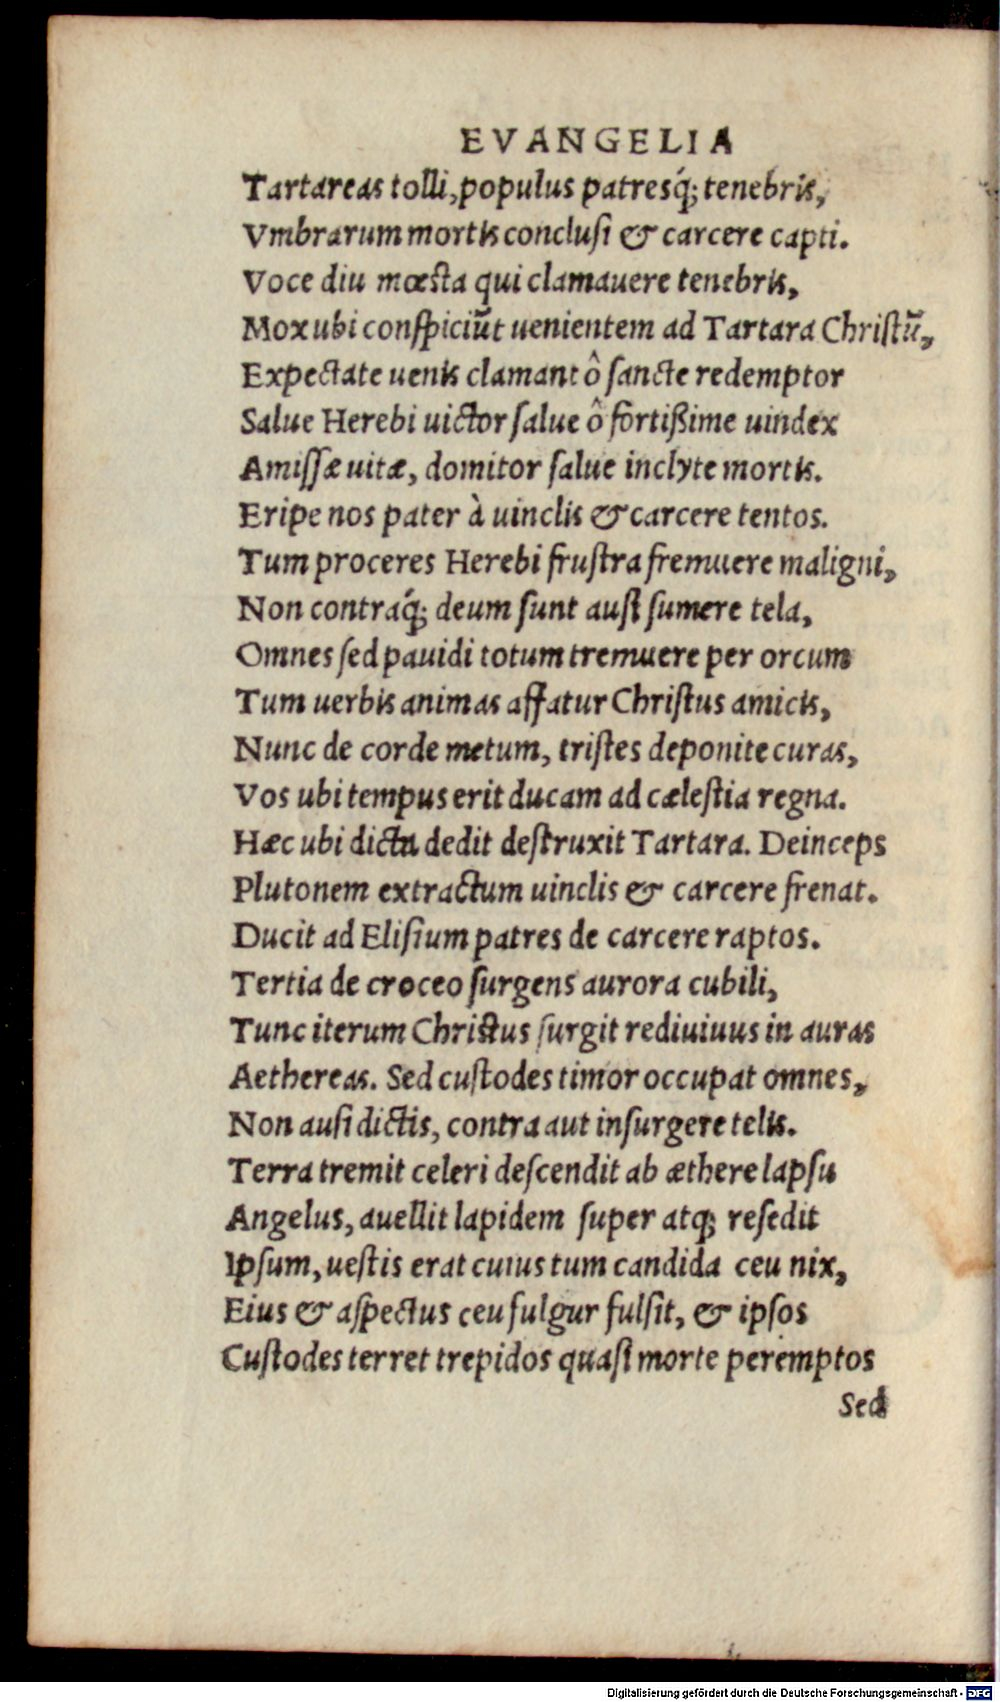 EVANGELIA
Tartareas tolli, populus patresq́; tenebris,
Vmbrarum mortis conclusi & carcere capti.
Voce diu mœsta qui clamauere tenebris,
Mox ubi conspiciũt uenientem ad Tartara Christũ,
Expectate uenis clamant ô sancte redemptor
Salue Herebi uictor salue ô fortißime uindex
Amissæ uitæ, domitor salue inclyte mortis.
Eripe nos pater à uinclis & carcere tentos.
Tum proceres Herebi frustra fremuere maligni,
Non contraq́; deum sunt ausi sumere tela,
Omnes sed pauidi totum tremuere per orcum
Tum uerbis animas affatur Christus amicis,
Nunc de corde metum, tristes deponite curas,
Vos ubi tempus erit ducam ad cælestia regna.
Hæc ubi dicta dedit destruxit Tartara. Deinceps
Plutonem extractum uinclis & carcere frenat.
Ducit ad Elisium patres de carcere raptos.
Tertia de croceo surgens aurora cubili,
Tunc iterum Christus surgit rediuiuus in auras
Aethereas. Sed custodes timor occupat omnes,
Non ausi dictis, contra aut insurgere telis.
Terra tremit celeri descendit ab æthere lapsu
Angelus, auellit lapidem super atq; resedit
Ipsum, uestis erat cuius tum candida ceu nix,
Eius & aspectus ceu fulgur fulsit, & ipsos
Custodes terret trepidos quasi morte peremptos
Sed
Digitalisierung gefördert durch die Deutsche Forschungsgemeinschaft - DFG